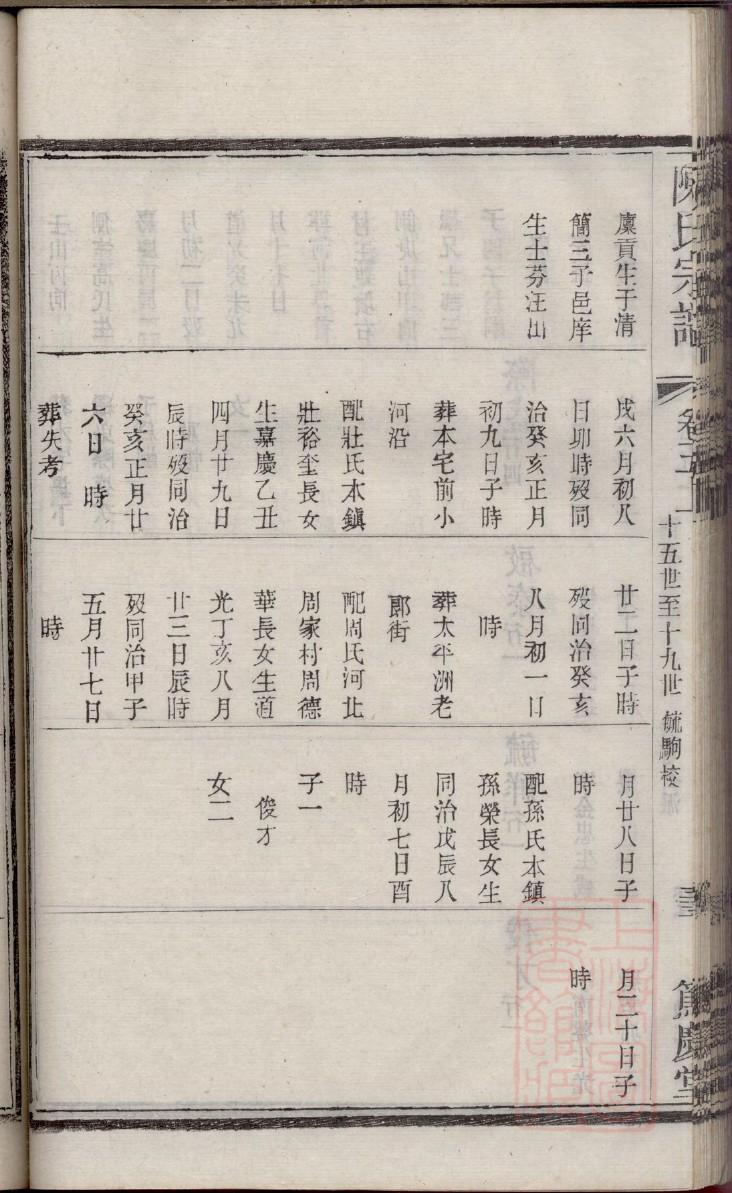 陳氏宗譜
卷三
十五世至十九世 毓駒校
篤慶堂
廪貢生子清
簡三子邑庠
生士芬汪出
戌六月初八
日卯時殁同
治癸亥正月
初九日子時
葬本宅前小
河沿
配莊氏本鎮
莊裕奎長女
生嘉慶乙丑
四月廿九日
辰時殁同治
癸亥正月廿
六日 時
葬失考
廿二日子時
殁同治癸亥
八月初一日
時
葬太平洲老
郎街
配周氏河北
周家村周德
華長女生道
光丁亥八月
廿三日辰時
殁同治甲子
五月廿七日
時
月廿八日子
時
配孫氏本鎮
孫榮長女生
同治戊辰八
月初七日酉
時
子一
俊才
女二
月二十日子
時